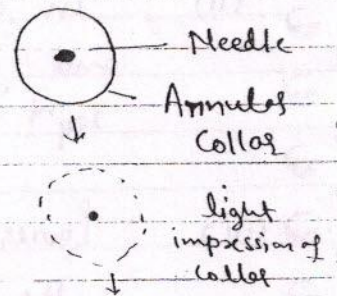 Needle
Annular
Collar
light
impression of
collar